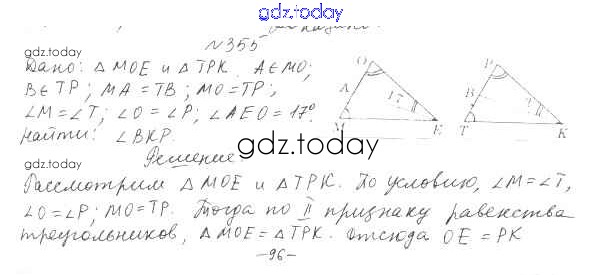 gdz.today
gdz.today
№355
Дано: △MOE и △TPK. A∈MO;
B∈TP; MA=TB; MO=TP;
∠M=∠T; ∠O=∠P; ∠AEO=17°.
Найти: ∠BKP.
O
A
17°
M
E
P
B
?
T
K
gdz.today
Решение:
gdz.today
Рассмотрим △MOE и △TPK. По условию, ∠M=∠T,
∠O=∠P; MO=TP. Тогда по II признаку равенства
треугольников, △MOE=△TPK. Отсюда OE=PK
-96-